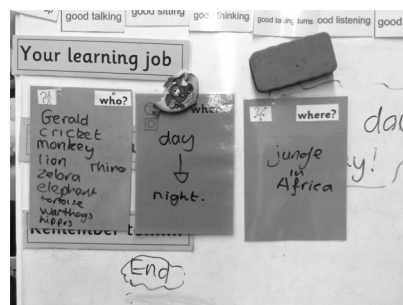 good talking
good sitting
good thinking
good talking turns
good listening
good
Your learning job
who?
Gerald
cricket
monkey
lion rhino
zebra
elephant
tortoise
warthogs
hippos
day
night.
where?
jungle
in
Africa
day
y!
Remember
End